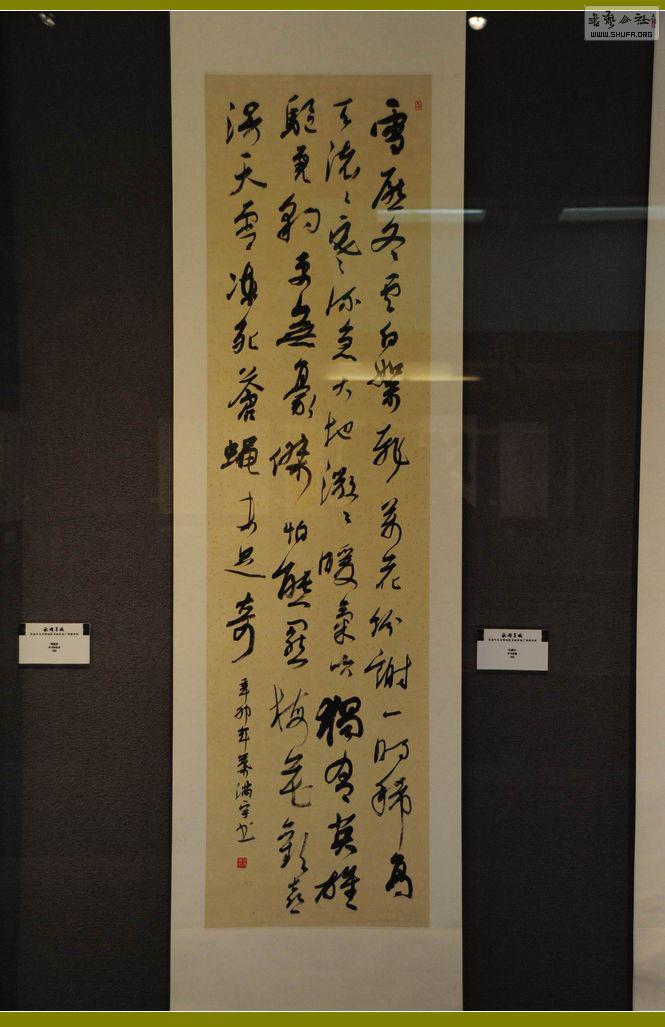 書藝公社
WWW.SHUFA.ORG
雪壓冬雲白絮飛萬花紛謝一時稀高
天滚〻寒流急大地微〻暖氣吹獨有英雄
驅虎豹更無豪傑怕熊羆梅花歡喜
漫天雪凍死蒼蠅未足奇
辛卯年滿宇书